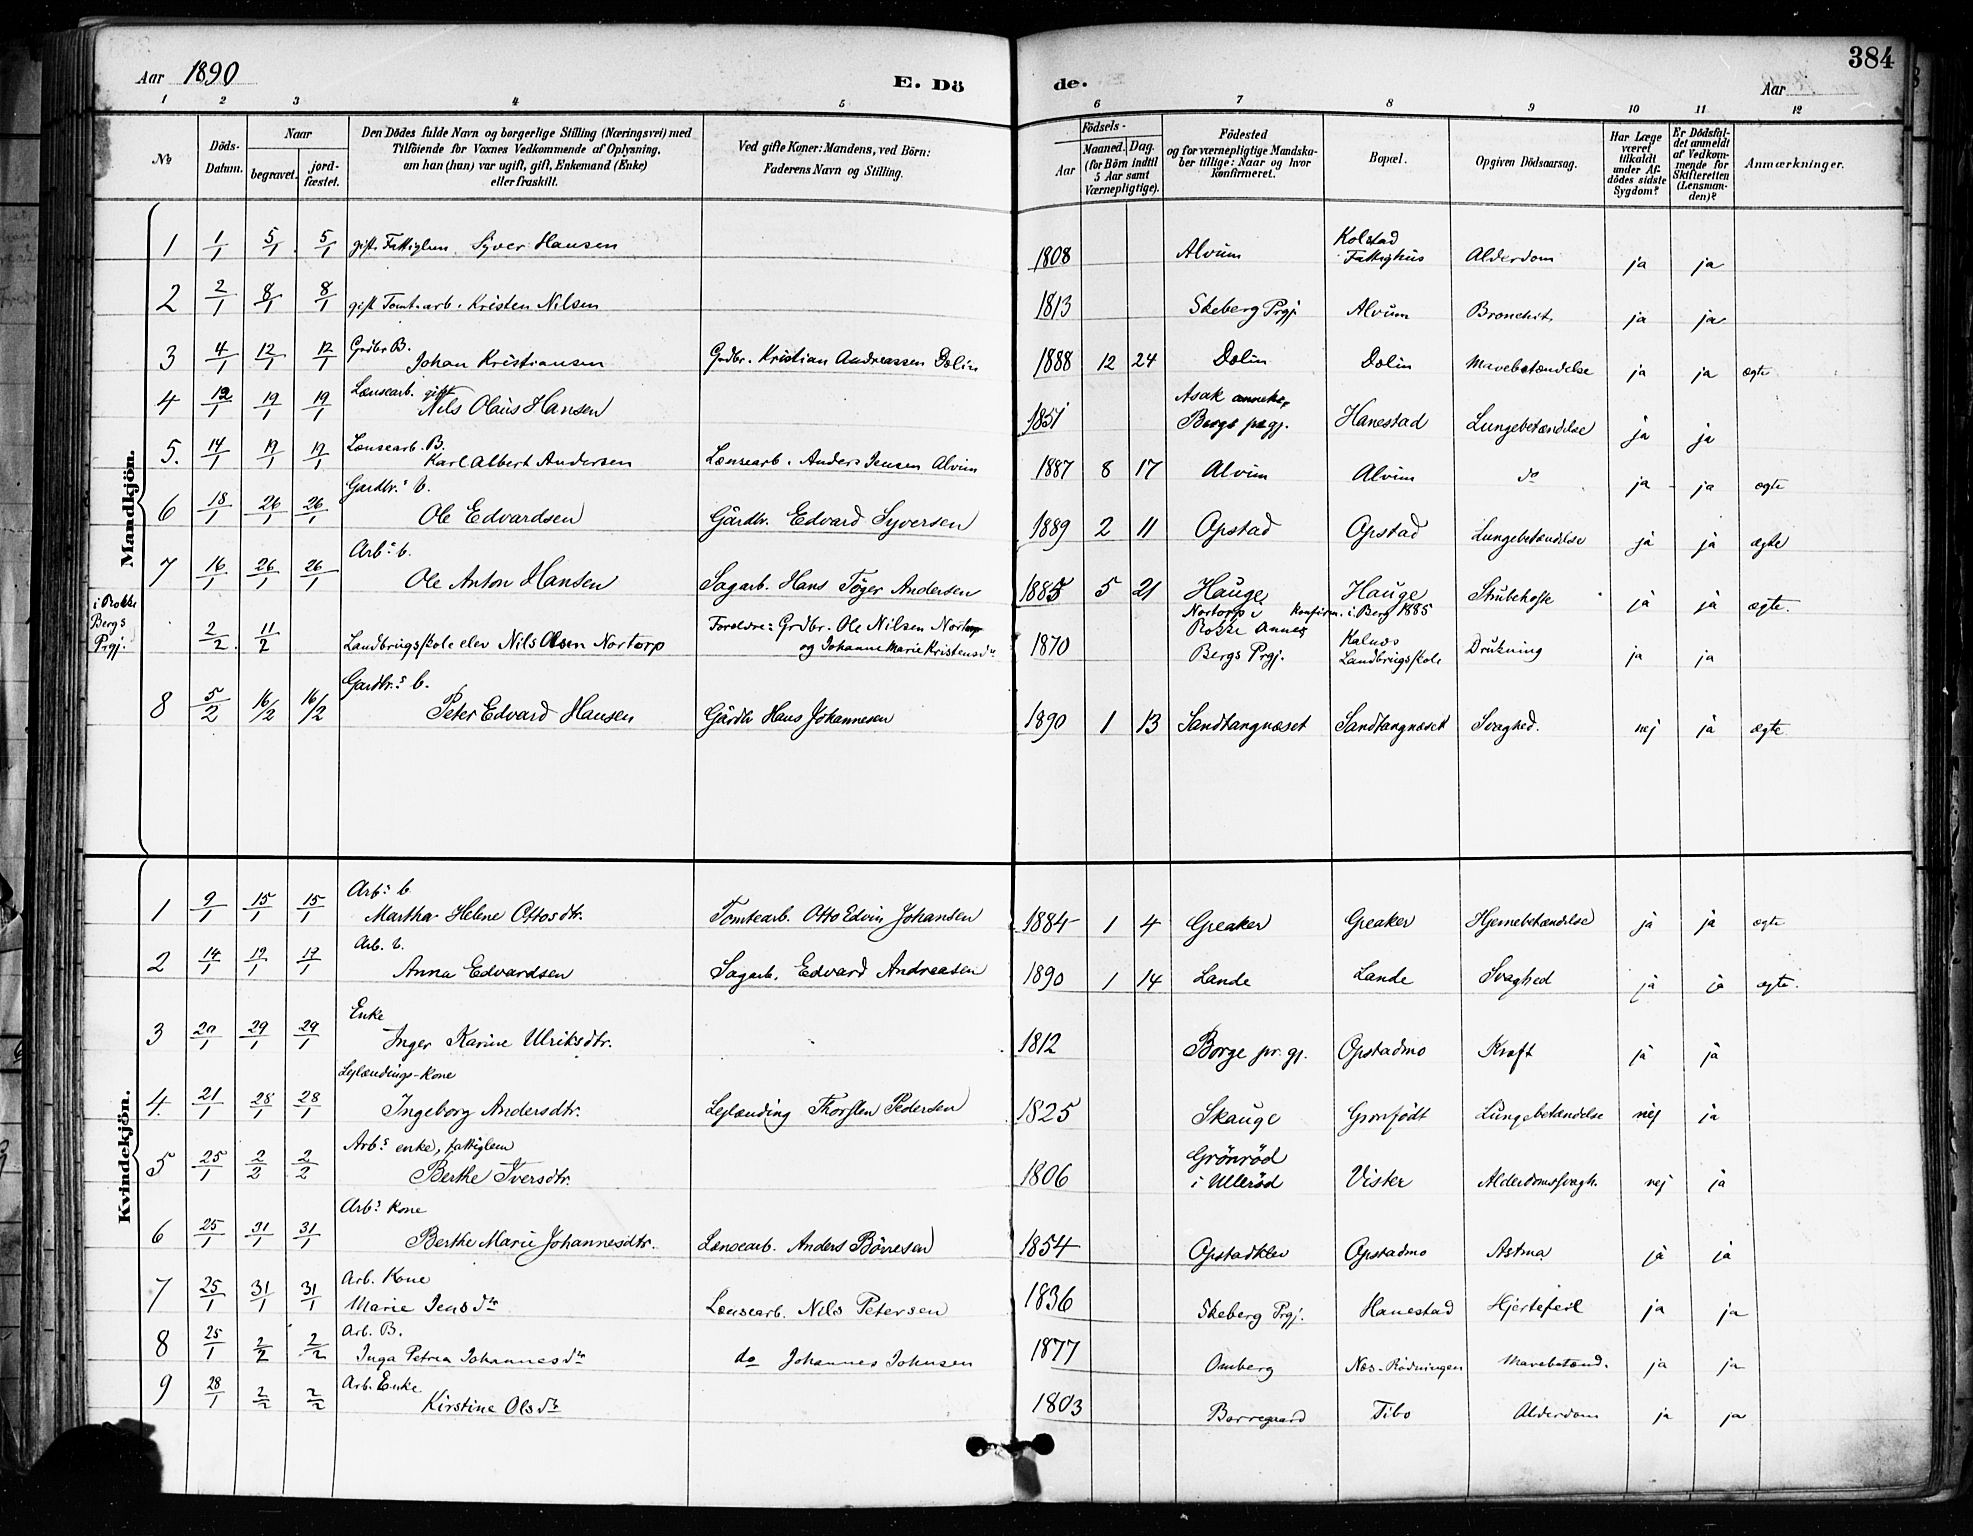 Aar 1890
E. Dö
de.
384
Aar
1 2 3 4 5 6 7 8 9 10 11 12
No
Döds-Datum.
Naar
begravet.
jord-fæstet.
Den Dödes fulde Navn og borgerlige Stilling (Næringsvei) med
Tilföiende for Voxnes Vedkommende af Oplysning,
om han (hun) var ugift, gift, Enkemand (Enke)
eller fraskilt.
Ved gifte Koner: Mandens, ved Börn:
Faderens Navn og Stilling.
Födsels-
Aar
Maaned. Dag.
(for Börn indtil
5 Aar samt
Værnepligtige).
Födested
og for værnepligtige Mandska-
ber tillige: Naar og hvor
konfirmeret.
Bopæl.
Opgiven Dödsaarsag.
Har Læge
været
tilkaldt
under Af-
dödes sidste
Sygdom?
Er Dödsfal-
det anmeldt
af Vedkom-
mende for
Skifteretten
(Lensman-
den)?
Anmærkninger.
Mandkjön.
1 1/1 5/1 5/1 gift Fattiglem Syver Hansen 1808 Alvum Kolstad Fattighus Alderdom ja ja
2 2/1 8/1 8/1 gift Tomt.arb. Kristen Nilsen 1813 Skeberg Prgj Alvum Bronchit ja ja
3 4/1 12/1 12/1 Grdbr B. Johan Kristiansen Grdbr. Kristian Andreassen Dælin 1888 12 24 Dælin Dælin Mavebetændelse ja ja ægte
4 12/1 19/1 19/1 Lænsearb. gift Nils Olaus Hansen 1851 Asak anneks, Bergs prgj. Hanestad Lungebetændelse ja ja
5. 14/1 19/1 19/1 Lænsearb. B. Karl Albert Andersen Lænsearb. Anders Jensen Alvim 1887 8 17 Alvim Alvim do ja ja ægte
6 18/1 26/1 26/1 Gardbr.s b. Ole Edvardsen Gårdbr. Edvard Syversen 1889 2 11 Opstad Opstad Lungebetændelse ja ja ægte
7 16/1 26/1 26/1 Arb.s b. Ole Anton Hansen Sagarb. Hans Töger Andersen 1885 5 21 Hauge Hauge Strubehoste ja ja ægte.
i Rokke Bergs Prgj. 2/2. 11/2 Landbrugsskole elev Nils Olsen Nortorp Foreldre: Grdbr. Ole Nilsen Nortorp og Johanne Marie Kristensdtr 1870 Nortorp i Rokke Annex Bergs Prgj. konfirm. i Berg 1885 Kalnæs Landbrugsskole Drukning ja ja
8 5/2 16/2 16/2 Gardbr.s b. Peter Edvard Hansen Gårdbr Hans Johannesen 1890 1 13 Sandtangnæset Sandtangnæset Svaghed. nej ja ægte
Kvindekjön.
1 9/1 15/1 15/1 Arb.s b Martha Helene Ottosdtr. Tomtearb. Otto Edvin Johansen 1884 1 4 Greaker Greaker Hjernebetændelse ja ja ægte
2 14/1 19/1 17/1 Arb. b. Anna Edvardsen Sagarb. Edvard Andreasen 1890 1 14 Lande Lande Svaghed ja ja ægte.
3 20/1 29/1 29/1 Enke Inger Karine Ulriksdtr. 1812 Borge pr.gj. Opstadmo Kræft ja ja
4. 21/1 28/1 28/1 Leilændings-Kone Ingeborg Andersdtr. Leilænding Thorsten Pedersen 1825 Skauge Grønfödt Lungebetændelse nej ja
5 25/1 2/2 2/2 Arb.s enke, fattiglem Berthe Iversdtr. 1806 Grönröd i Ulleröd Vister Alderdomssvagh. nej ja
6 25/1 31/1 31/1 Arb.s Kone Berthe Marie Johannesdtr. Lænsearb. Anders Börresen 1854 Opstadklev Opstadmo Astma ja ja
7 25/1 31/1 31/1 Arb. Kone Marie Jensdtr Lænsearb. Nils Petersen 1836 Skeberg Prgj. Hanestad Hjertefeil ja ja
8 25/1 2/2 2/2 Arb. B. Inga Petrea Johannesdtr do Johannes Johnsen 1877 Omberg Næs-Rödningen Mavebetænd. ja ja
9 28/1 2/2 2/2 Arb. Enke Kirstine Olsdtr 1803 Borregaard Tibo Alderdom ja ja